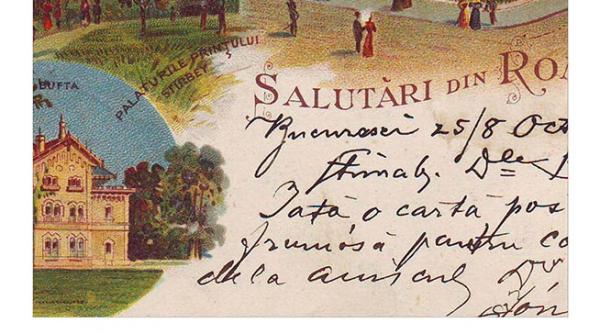 BUFTA
PALATURILE PRINŢULUI
STIRBEY
SALUTĂRI DIN RO
Bucuresci 25/8 Oct
Stimab. Dle
Iată o cartă pos
frumósă pentru co
dela amicul